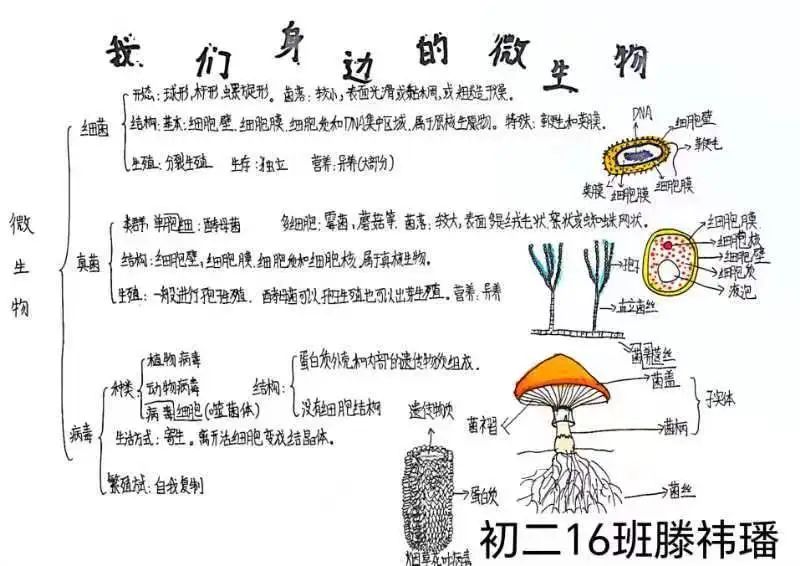 我们身边的微生物
微生物
细菌
形态：球形，杆形，螺旋形。 菌落：较小，表面光滑或黏稠，或粗糙干燥。
结构：基本：细胞壁，细胞膜，细胞质和DNA集中区域，属于原核生物。 特殊：鞭毛和荚膜。
生殖：分裂生殖 生存：独立 营养：异养(大部分)
DNA
细胞壁
鞭毛
荚膜
细胞膜
细胞膜
真菌
类群：单胞细：酵母菌 多细胞：霉菌，蘑菇等. 菌落：较大，表面多是绒毛状，絮状或蜘蛛网状。
结构：细胞壁，细胞膜，细胞质和细胞核，属于真核生物。
生殖：一般进行孢子生殖. 酵母菌可以孢子生殖也可以出芽生殖。 营养：异养
细胞膜
细胞核
细胞壁
细胞质
液泡
孢子
直立菌丝
病毒
种类
植物病毒
动物病毒
病毒细胞(噬菌体)
结构：
蛋白质外壳和内部的遗传物质组成.
没有细胞结构
生活方式：寄生。离开活细胞变成结晶体。
繁殖方式：自我复制
遗传物质
蛋白质
烟草花叶病毒
菌盖
子实体
菌褶
菌柄
菌丝
初二16班滕祎璠